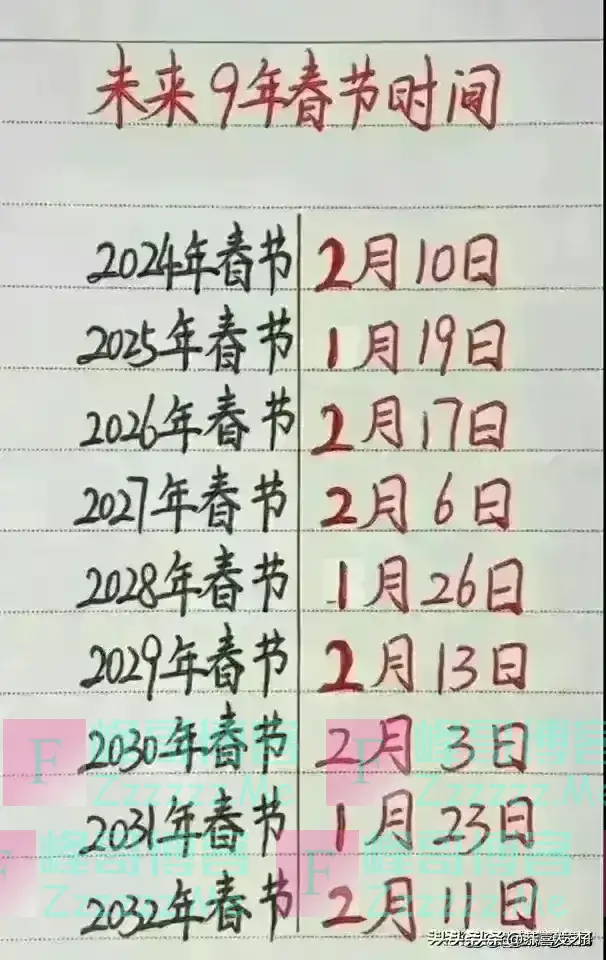 未来9年春节时间
2024年春节 2月10日
2025年春节 1月19日
2026年春节 2月17日
2027年春节 2月6日
2028年春节 1月26日
2029年春节 2月13日
2030年春节 2月3日
2031年春节 1月23日
2032年春节 2月11日
F 峰哥博客
Zzzzzz.Me
F 峰哥博客
Zzzzzz.Me
峰哥博客
Zzzzzz.Me
F 峰哥博客
Zzzzzz.Me